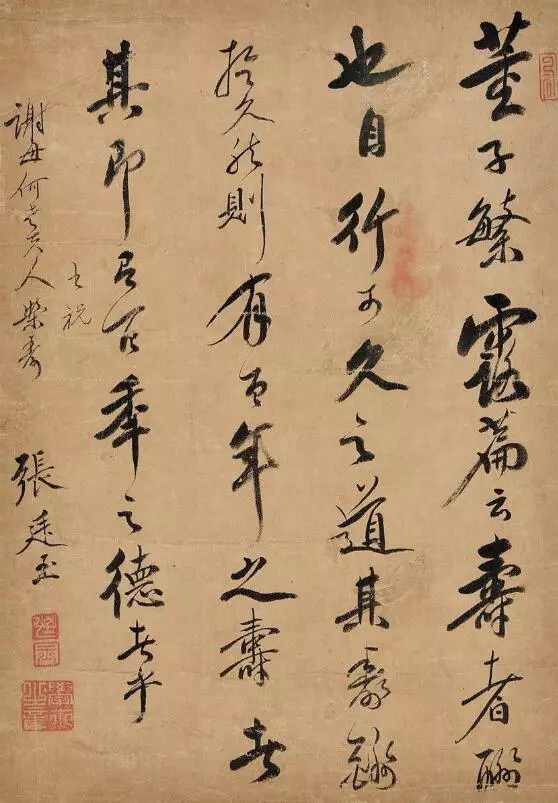 董子繁露篇云壽者酬
也自行可久之道其壽酬
於久然則有百年之壽者
其即有百秊之德者乎
書祝
謝母何老夫人榮壽
張廷玉